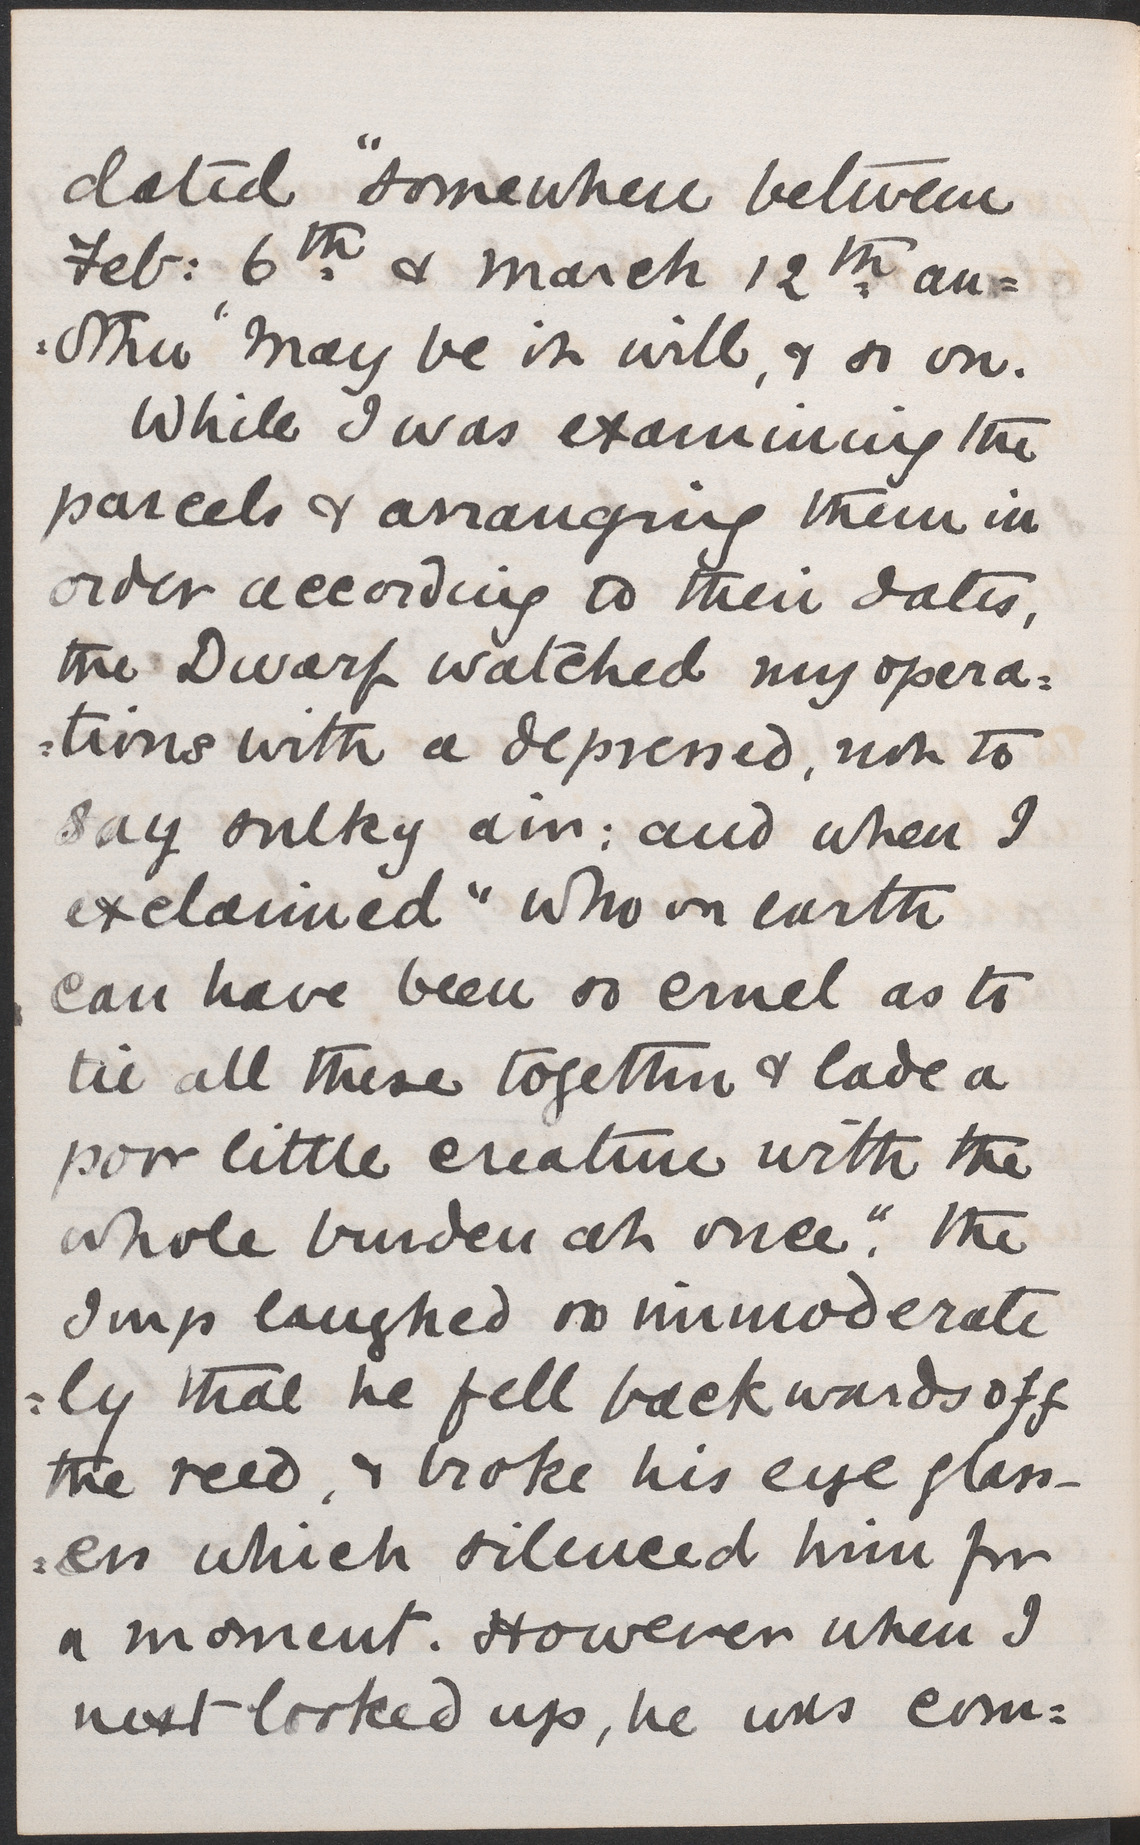 dated "somewhere between
Feb: 6th & March 12th an=
=other" May be it will, & so on.
While I was examining the
parcels & arranging them in
order according to their dates,
the Dwarf watched my opera=
=tions with a depressed, not to
say sulky air; and when I
exclaimed "Who on earth
can have been so cruel as to
tie all these together & lade a
poor little creature with the
whole burden at once". the
Imp laughed so immoderate
=ly that he fell backwards off
the reed, & broke his eye glass-
=es which silenced him for
a moment. However when I
next looked up, he was com=